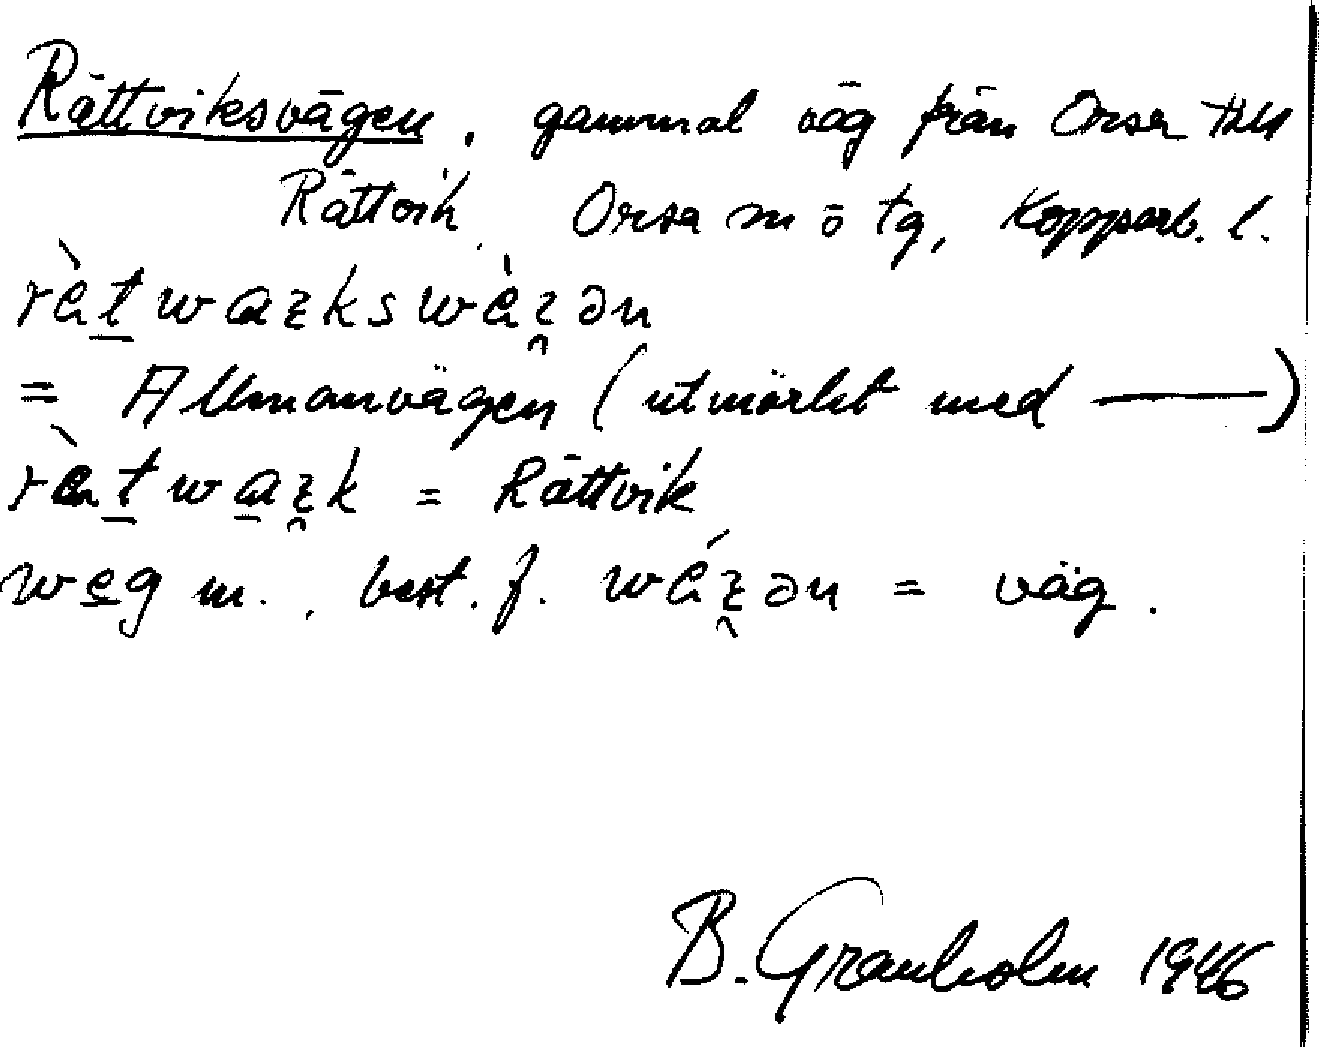 Rättviksvägen, gammal väg från Orsa till
Rättvik. Orsa sn o tg, Kopparb. l.
= Allmanvägen (utmärkt med ——)
= Rättvik
m., best. f. = väg.
B. Granholm 1946